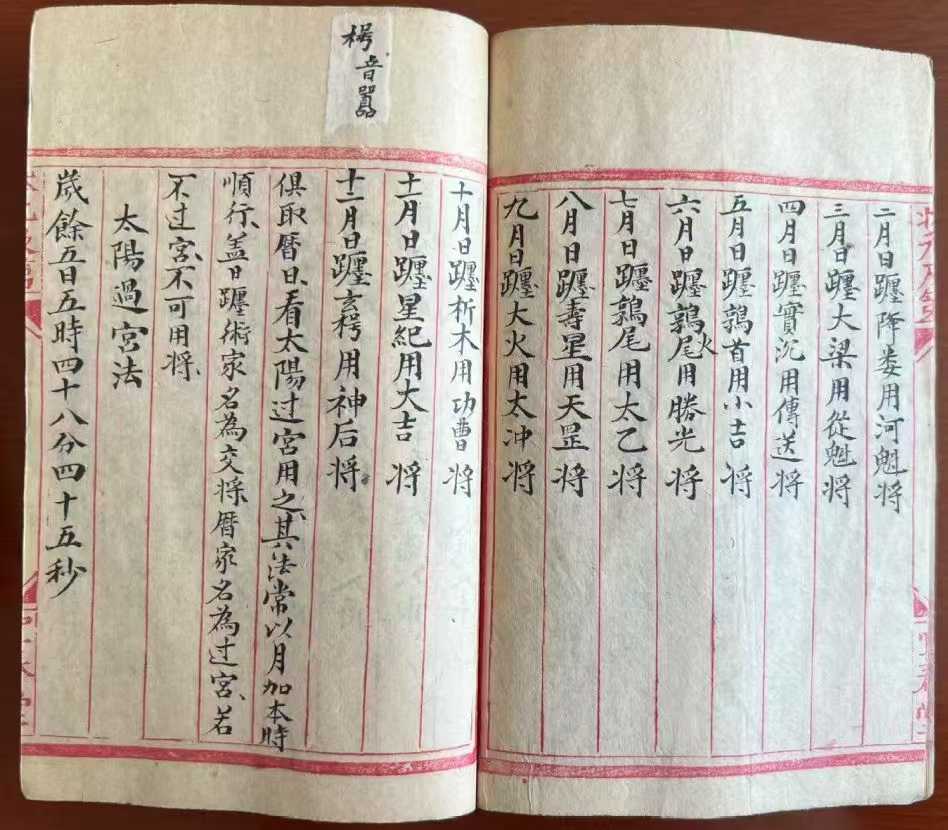 二月日躔降娄用河魁将
三月日躔大梁用從魁将
四月日躔實沉用傳送将
五月日躔鶉首用小吉将
六月日躔鶉尾火用勝光将
七月日躔鶉尾用太乙将
八月日躔壽星用天罡将
九月日躔大火用太冲将
枵音嚣
十月日躔析木用功曹将
十一月日躔星紀用大吉将
十二月日躔玄枵用神后将
俱取暦日、看太陽过宫用之、其法常以月加本時
順行、盖日躔術家名為交将、暦家名為过宫、若
不过宫、不可用将、
太陽過宫法
歲餘五日五時四十八分四十五秒